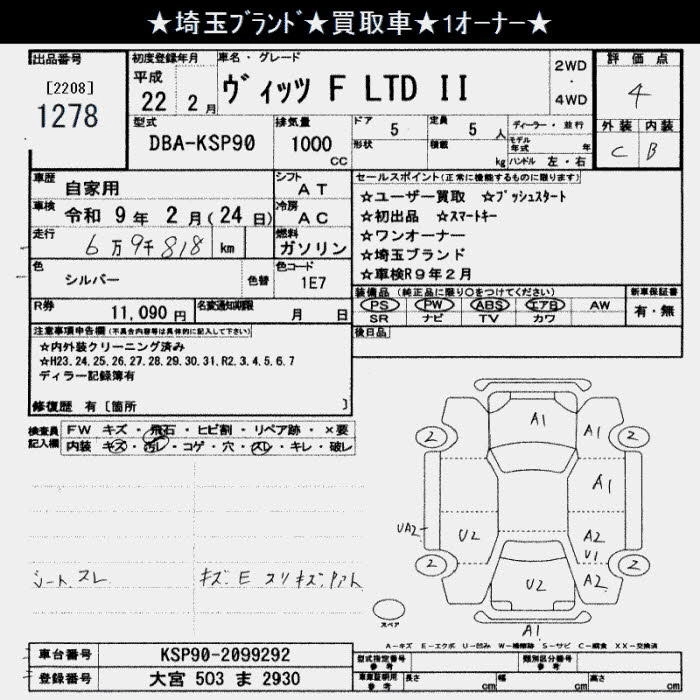 ★埼玉ブランド★買取車★1オーナー★
出品番号
[2208]
1278
初度登録年月
平成
22年 2月
車名・グレード
ヴィッツ F LTD II
2WD
・
4WD
評価点
4
外装 内装
C B
型式
DBA-KSP90
排気量
1000
CC
ドア 5
形状
定員 5 人
積載 kg
ディーラー・並行
モデル年式 年
ハンドル 左・右
車歴 自家用
シフト AT
車検 令和 9年 2月(24日)
冷房 AC
走行 6万9千818 km
燃料 ガソリン
色 シルバー 色替
色コード 1E7
R券 11,090円
名変通知期限 月 日
セールスポイント(正常に機能するものに限ります)
☆ユーザー買取 ☆プッシュスタート
☆初出品 ☆スマートキー
☆ワンオーナー
☆埼玉ブランド
☆車検R9年2月
装備品(純正品に限り○をつけてください)
PS PW ABS エアB AW
SR ナビ TV カワ
新車保証書
有・無
後日品
注意事項申告欄(不具合内容等は具体的に記入して下さい)
☆内外装クリーニング済み
☆H23.24.25.26.27.28.29.30.31.R2.3.4.5.6.7
ディラー記録簿有
修復歴 有[箇所 ]
検査員記入欄
FW キズ・飛石・ヒビ割・リペア跡・×要
内装 キズ・汚レ・コゲ・穴・スレ・キレ・破レ
シートスレ
キズ.E スリキズ.アクト
A1
2
A1
2
A1
UA2
U2
A2
U1
2
U2
A2
2
スペア
A1
A-キズ E-エクボ U-凹み W-補修跡 S-サビ C-腐食 XX-交換済
車台番号 KSP90-2099292
登録番号 大宮 503 ま 2930
型式指定番号 参考
類別区分番号 参考
車庫証明用 参考
長さ cm
幅 cm
高さ cm